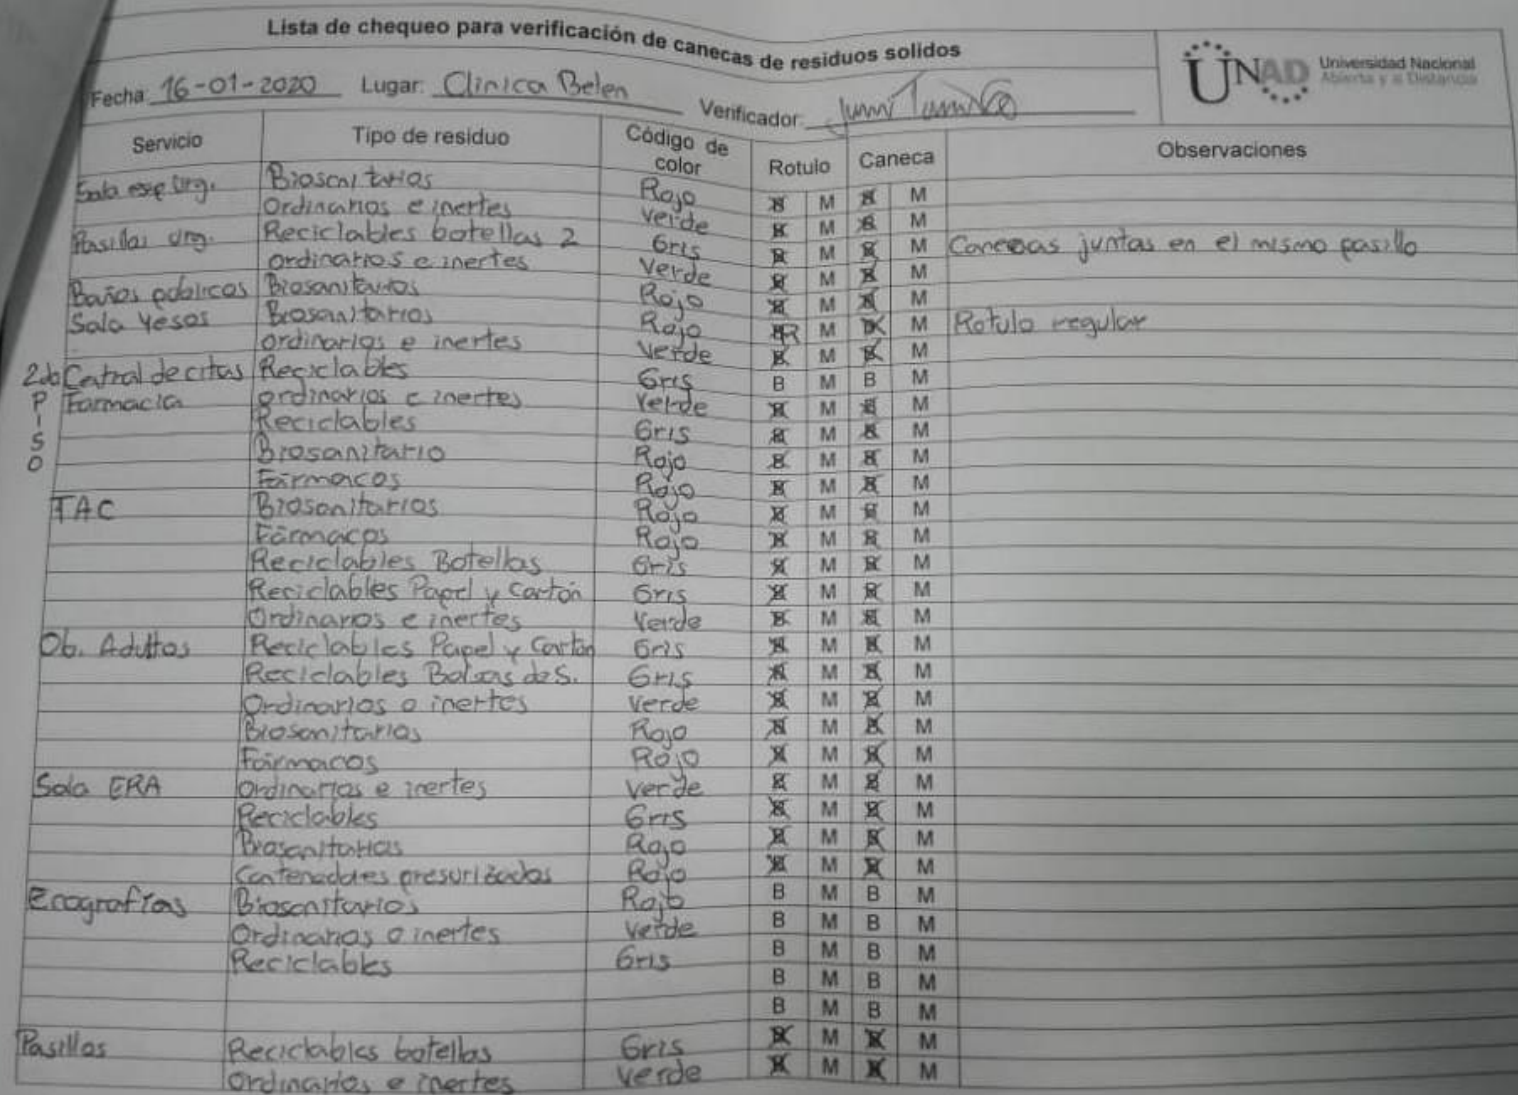 Lista de chequeo para verificación de canecas de residuos solidos
UNAD Universidad Nacional
Abierta y a Distancia
Fecha: 16-01-2020 Lugar: Clinica Belen Verificador:
Servicio Tipo de residuo Código de color Rotulo Caneca Observaciones
Sala esp Urg. Biosanitarios Rojo B M B M
Ordinarios e inertes Verde B M B M
Pasillos Urg. Reciclables botellas 2 Gris B M B M Canecas juntas en el mismo pasillo
Ordinarios e inertes Verde B M B M
Baños públicos Biosanitarios Rojo B M B M
Sala Yesos Biosanitarios Rojo R M B M Rotulo regular
Ordinarios e inertes Verde B M B M
2do PISO
Central de citas Reciclables Gris B M B M
Farmacia Ordinarios e inertes Verde B M B M
Reciclables Gris B M B M
Biosanitario Rojo B M B M
Fármacos Rojo B M B M
TAC Biosanitarios Rojo B M B M
Fármacos Rojo B M B M
Reciclables Botellas Gris B M B M
Reciclables Papel y Cartón Gris B M B M
Ordinarios e inertes Verde B M B M
Ob. Adultos Reciclables Papel y Cartón Gris B M B M
Reciclables Bolsas de S. Gris B M B M
Ordinarios o inertes Verde B M B M
Biosanitarios Rojo B M B M
Fármacos Rojo B M B M
Sala ERA Ordinarios e inertes Verde B M B M
Reciclables Gris B M B M
Biosanitarios Rojo B M B M
Contenedores presurizados Rojo B M B M
Ecografías Biosanitarios Rojo B M B M
Ordinarios o inertes Verde B M B M
Reciclables Gris B M B M
B M B M
B M B M
Pasillos Reciclables botellas Gris B M B M
Ordinarios e inertes Verde B M B M